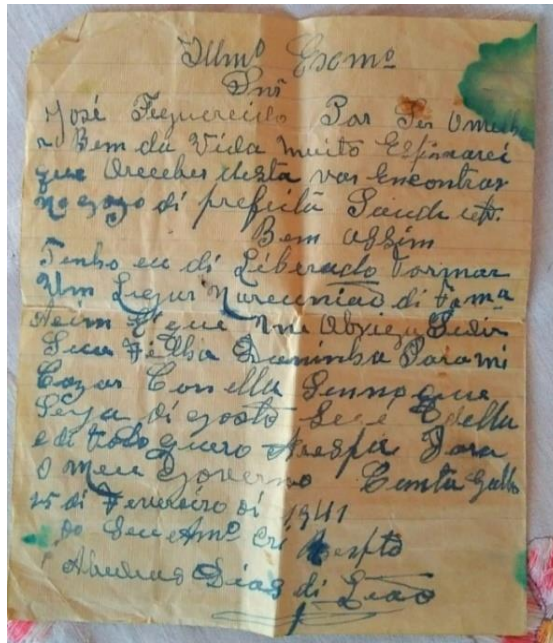 Illmº Exomº
Snr
José Feguereido Por Ser Omelho
r Bem da Vida muito Estimarei
que Oreceber desta vas Encontrar
no gozo di prefeita Saude etc.
Bem assim
Tenho eu di Liberado tormar
Um Legar Nareuniao di
que me Obriga Pedir
Seua Filha Para mi
Cazar Con ella Senno que
Seya di gosto Seu E della
e di todo quero Para
O meu Governo Canta Gallo
25 di Fevereiro di 1941
do Seu Amº Cri
Dias di Leao